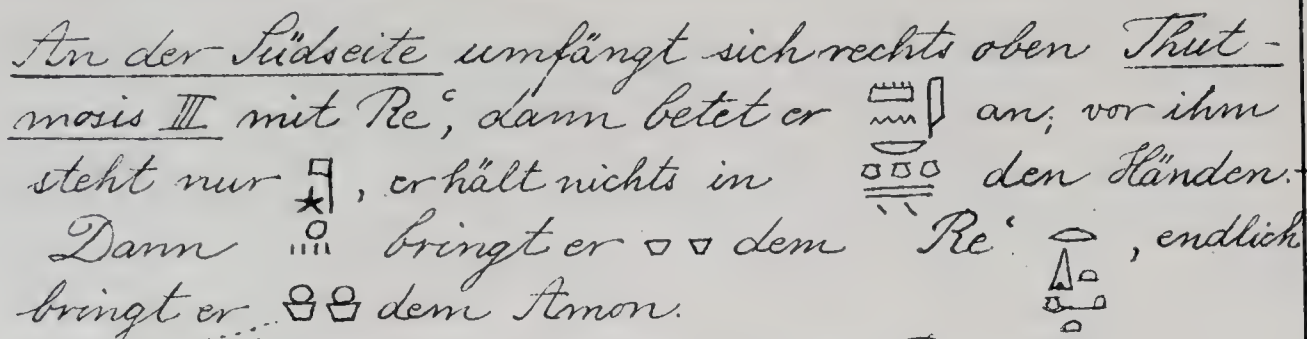 An der Südseite umfängt sich rechts oben Thut-
mosis III mit Reʿ, dann betet er 𓏠𓈖𓇋 an; vor ihm
steht nur 𓊹𓇼, er hält nichts in den Händen.
Dann bringt er ▽▽ dem Reʿ, endlich
bringt er dem Amon.